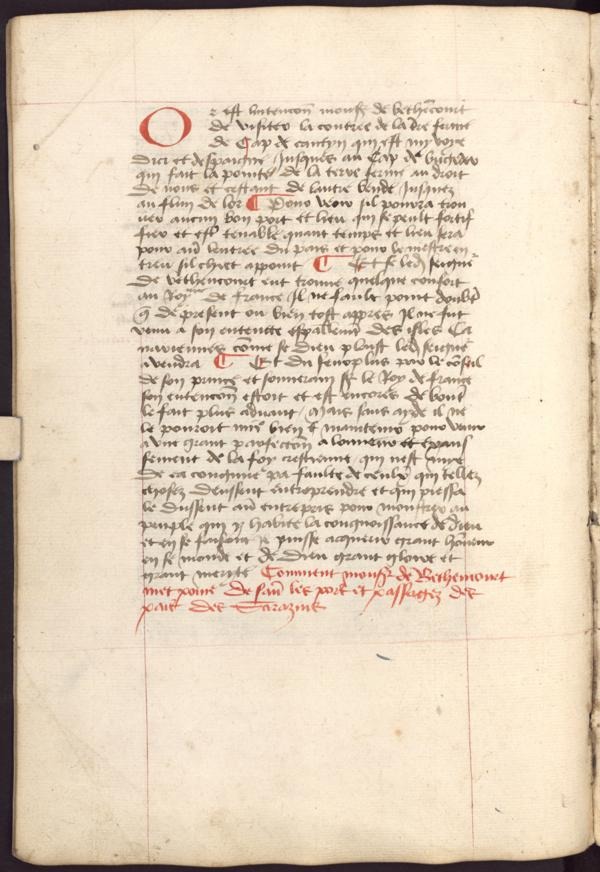 Or est lintencion mons&#x27; de bethencourt
de visiter la contree de la t&#x27;re ferme
de Cap de cantyn qui est my voye
dici et despaigne / Jusques au Cap de bugeder
qui fait la pointe de la terre ferme au droit
de nous et sestant de lautre bende Jusquez
au flun de lor Pour veoir sil pourra trou
uer aucun bon port et lieu qui se peult fortif
fier et estre tenable quant temps et lieu sera
pour auoir lentree du pais et pour le mettre en
treu sil chiet appoint Et se led&#x27; seigne&#x27;
de bethencourt eut trouue quelque confort
au Royme de france Il ne fault point doubter
q de present ou bien tost appres Il ne fut
venu a son entente especialment des isles Ca
nariennes come se dieu plaist led&#x27; seigne&#x27;
vendra Et du seurplus par le conseil
de son prince et souuerain s&#x27; le Roy de france
son entencion estoit et est encores de bouter
le fait plus aduant / Mais sans ayde il ne
le pourroit mie bien maintenir pour venir
a vne grant parfection a lonneur et epaus
sement de la foy crestienne / qui nest mye
de ca congnue pa faulte de ceulx qui tellez
chosez deussent entreprendre et qui piessa
le dussent auoir entrepris pour monstrer au
peuple qui y habite la congnoissance de dieu
et en se faisant y puisse acquerir grant honneur
en se monde et de dieu grant gloire et
grant merite Comment mons&#x27; de Bethencourt
met poine de sauoir les pors et passagez des
pais des Sarazins